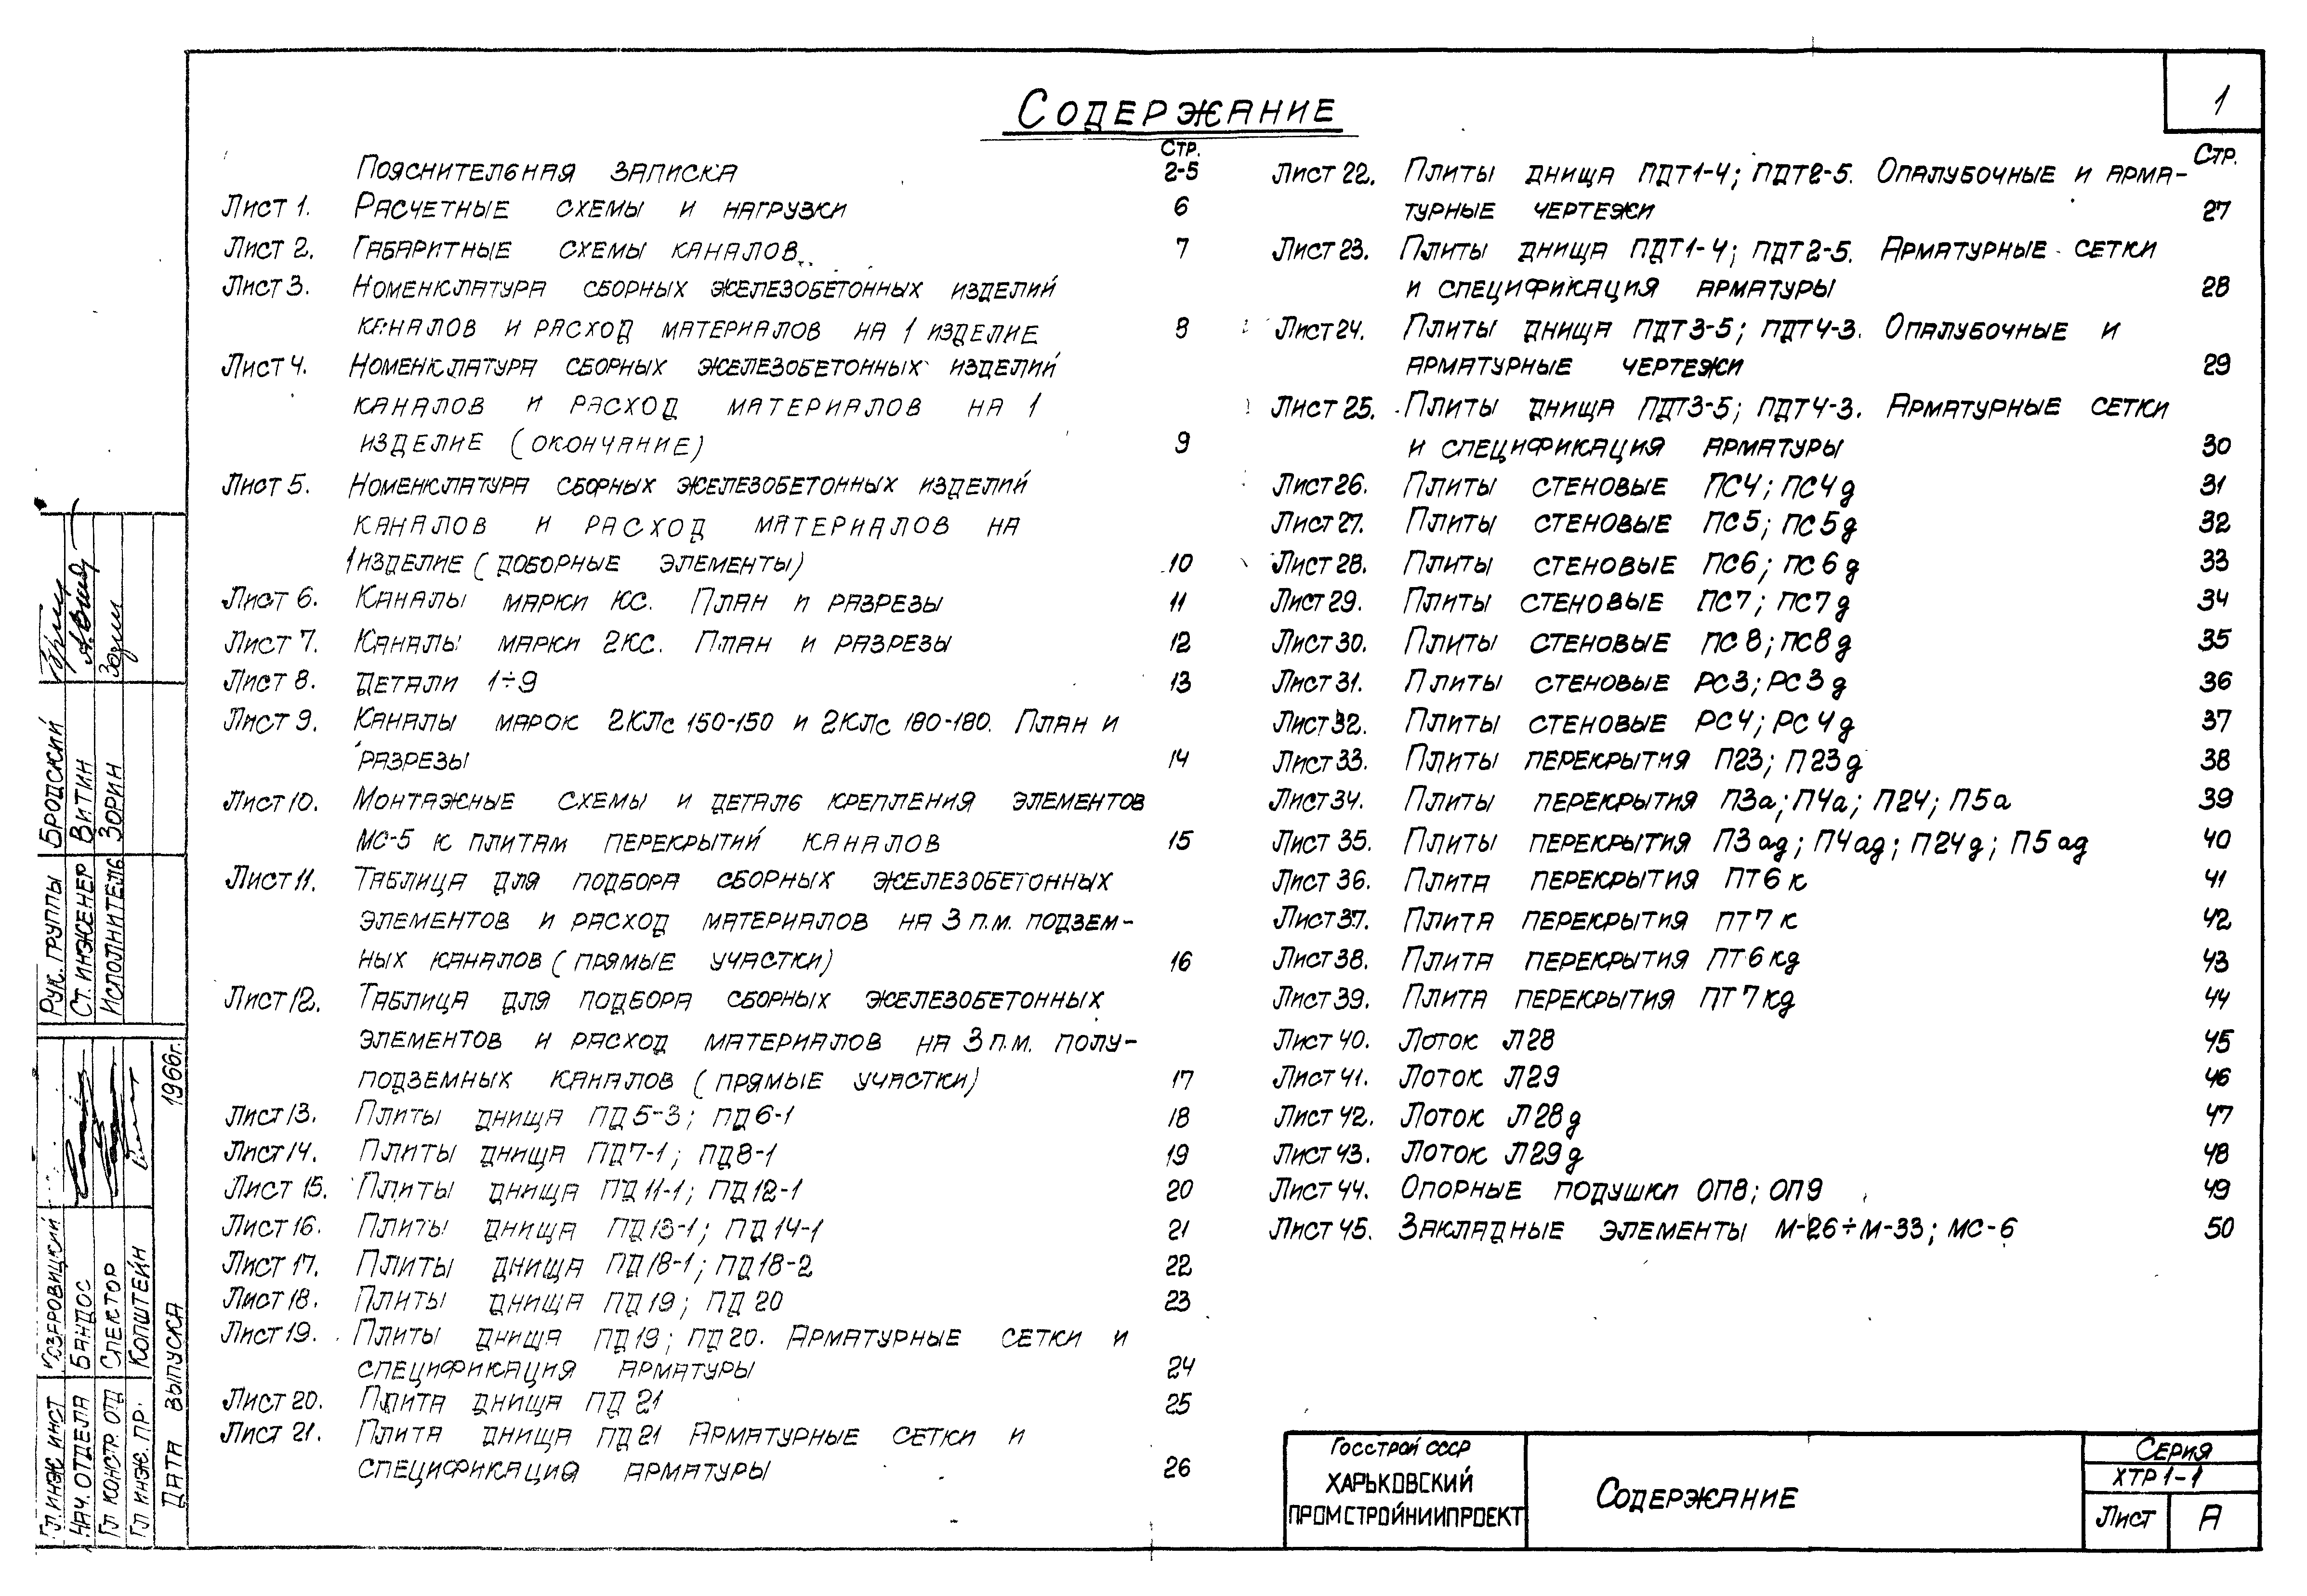 1
Содержание
Стр.
Пояснительная записка 2-5
Лист 1. Расчетные схемы и нагрузки 6
Лист 2. Габаритные схемы каналов 7
Лист 3. Номенклатура сборных железобетонных изделий
каналов и расход материалов на 1 изделие 8
Лист 4. Номенклатура сборных железобетонных изделий
каналов и расход материалов на 1
изделие (окончание) 9
Лист 5. Номенклатура сборных железобетонных изделий
каналов и расход материалов на
1 изделие (доборные элементы) 10
Лист 6. Каналы марки КС. План и разрезы 11
Лист 7. Каналы марки 2КС. План и разрезы 12
Лист 8. Детали 1÷9 13
Лист 9. Каналы марок 2КЛс 150-150 и 2КЛс 180-180. План и
разрезы 14
Лист 10. Монтажные схемы и деталь крепления элементов
МС-5 к плитам перекрытий каналов 15
Лист 11. Таблица для подбора сборных железобетонных
элементов и расход материалов на 3 п.м. подзем-
ных каналов (прямые участки) 16
Лист 12. Таблица для подбора сборных железобетонных
элементов и расход материалов на 3 п.м. полу-
подземных каналов (прямые участки) 17
Лист 13. Плиты днища ПД5-3; ПД6-1 18
Лист 14. Плиты днища ПД7-1; ПД8-1 19
Лист 15. Плиты днища ПД11-1; ПД12-1 20
Лист 16. Плиты днища ПД13-1; ПД14-1 21
Лист 17. Плиты днища ПД18-1; ПД18-2 22
Лист 18. Плиты днища ПД19; ПД20 23
Лист 19. Плиты днища ПД19; ПД20. Арматурные сетки и
спецификация арматуры 24
Лист 20. Плита днища ПД21 25
Лист 21. Плита днища ПД21 Арматурные сетки и
спецификация арматуры 26
Стр.
Лист 22. Плиты днища ПДТ1-4; ПДТ2-5. Опалубочные и арма-
турные чертежи 27
Лист 23. Плиты днища ПДТ1-4; ПДТ2-5. Арматурные сетки
и спецификация арматуры 28
Лист 24. Плиты днища ПДТ3-5; ПДТ4-3. Опалубочные и
арматурные чертежи 29
Лист 25. Плиты днища ПДТ3-5; ПДТ4-3. Арматурные сетки
и спецификация арматуры 30
Лист 26. Плиты стеновые ПС4; ПС4д 31
Лист 27. Плиты стеновые ПС5; ПС5д 32
Лист 28. Плиты стеновые ПС6; ПС6д 33
Лист 29. Плиты стеновые ПС7; ПС7д 34
Лист 30. Плиты стеновые ПС8; ПС8д 35
Лист 31. Плиты стеновые РС3; РС3д 36
Лист 32. Плиты стеновые РС4; РС4д 37
Лист 33. Плиты перекрытия П23; П23д 38
Лист 34. Плиты перекрытия П3а; П4а; П24; П5а 39
Лист 35. Плиты перекрытия П3ад; П4ад; П24д; П5ад 40
Лист 36. Плита перекрытия ПТ6к 41
Лист 37. Плита перекрытия ПТ7к 42
Лист 38. Плита перекрытия ПТ6кд 43
Лист 39. Плита перекрытия ПТ7кд 44
Лист 40. Лоток Л28 45
Лист 41. Лоток Л29 46
Лист 42. Лоток Л28д 47
Лист 43. Лоток Л29д 48
Лист 44. Опорные подушки ОП8; ОП9 49
Лист 45. Закладные элементы М-26÷М-33; МС-6 50
Рук. группы Бродский
Ст. инженер Витин
Исполнитель Зорин
Гл. инж. инст
Нач. отдела Бандос
Гл. констр. отд Спектор
Гл. инж. пр. Копштейн
Дата выпуска 1966г.
Госстрой СССР
Харьковский
Промстройниипроект
Содержание
Серия
ХТР 1-1
Лист А